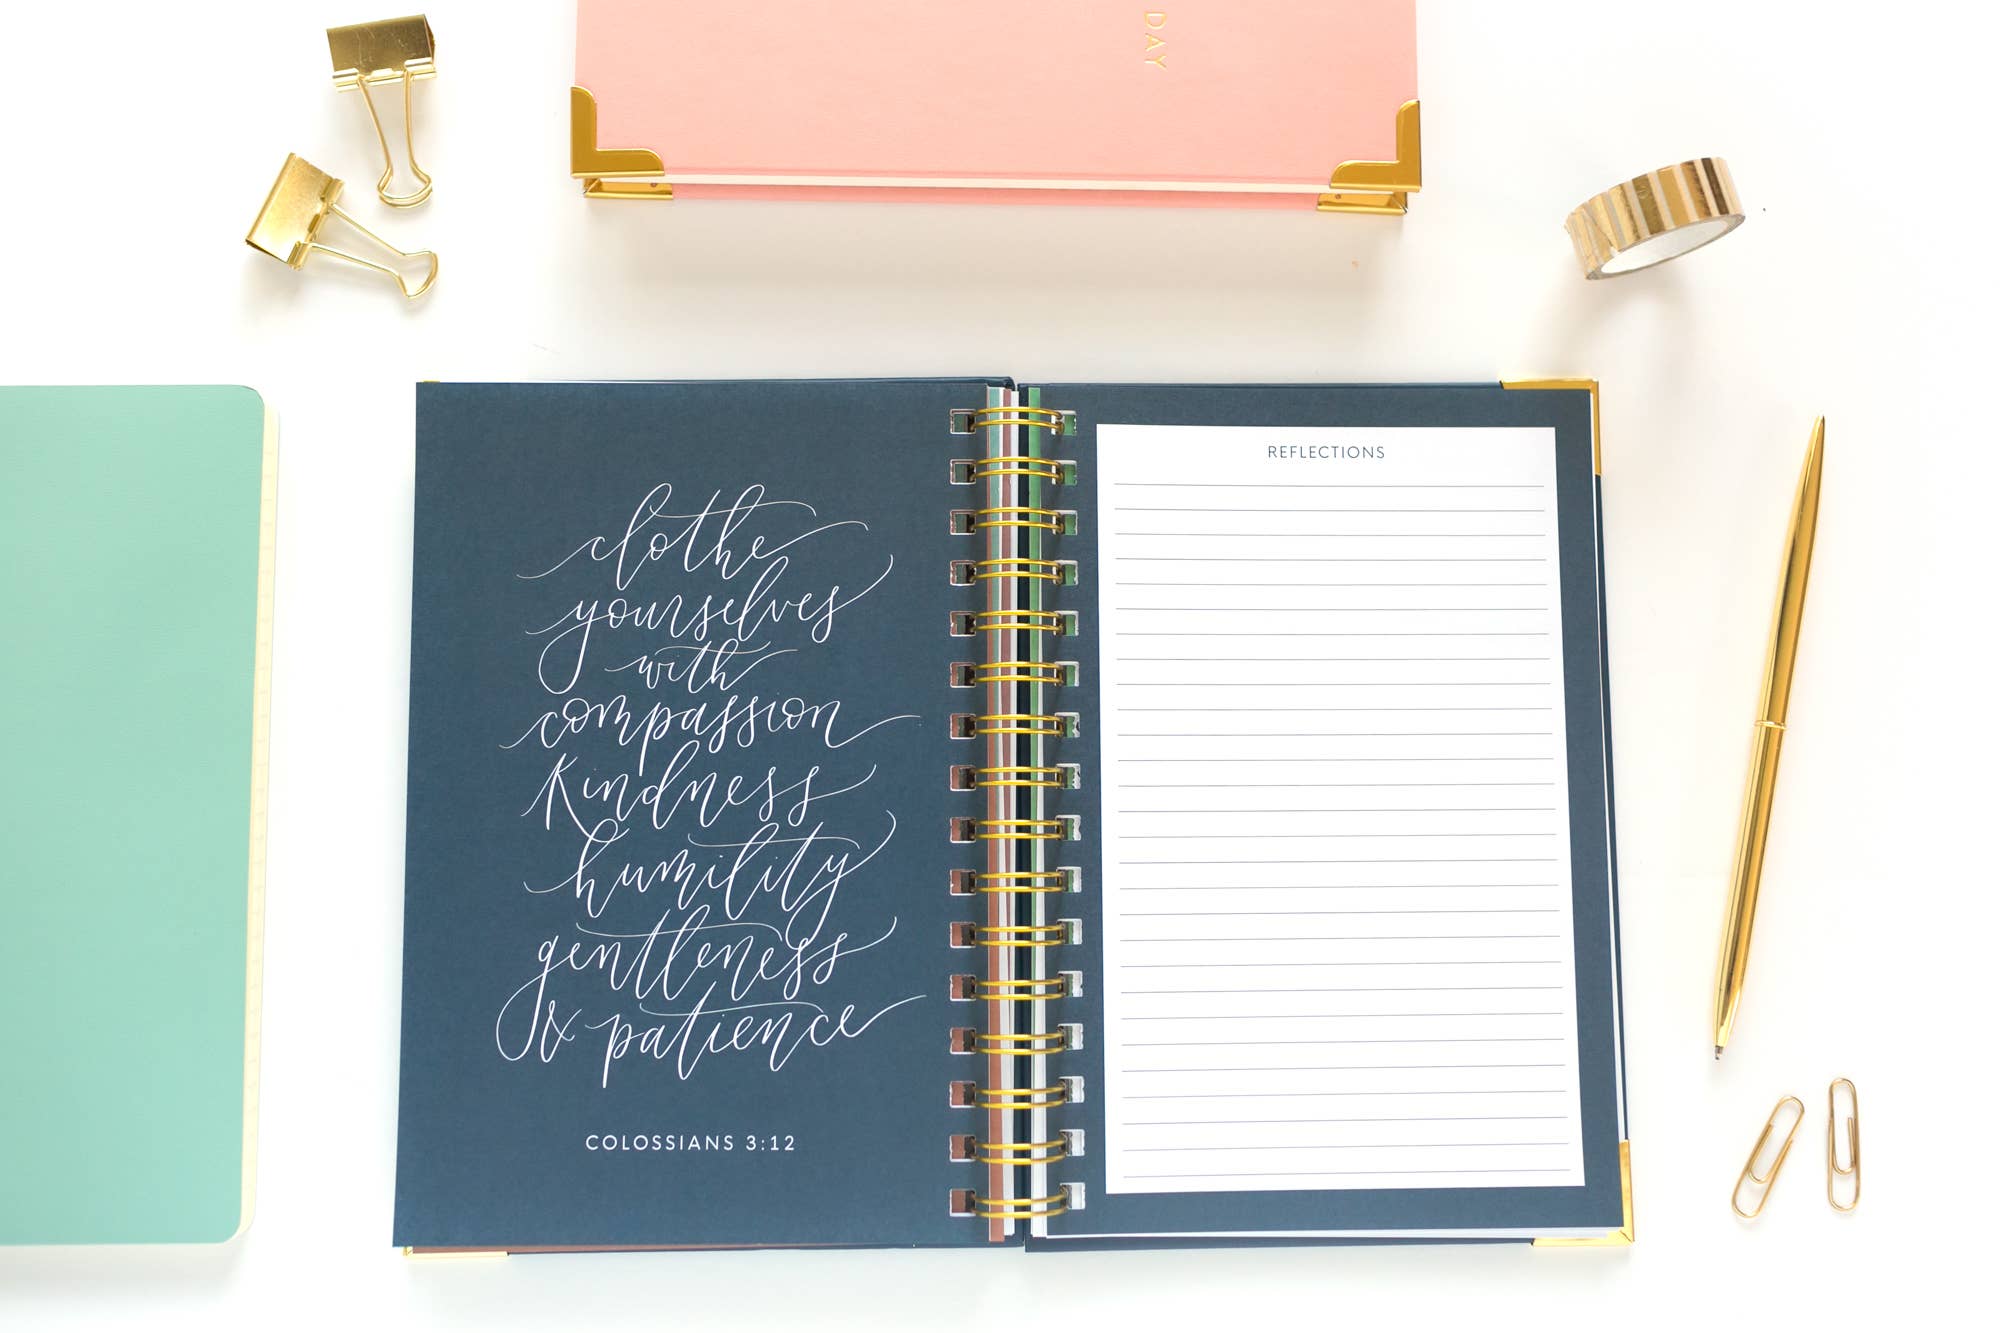 DAY
clothe
yourselves
with
compassion
kindness
humility
gentleness
& patience
COLOSSIANS 3:12
REFLECTIONS